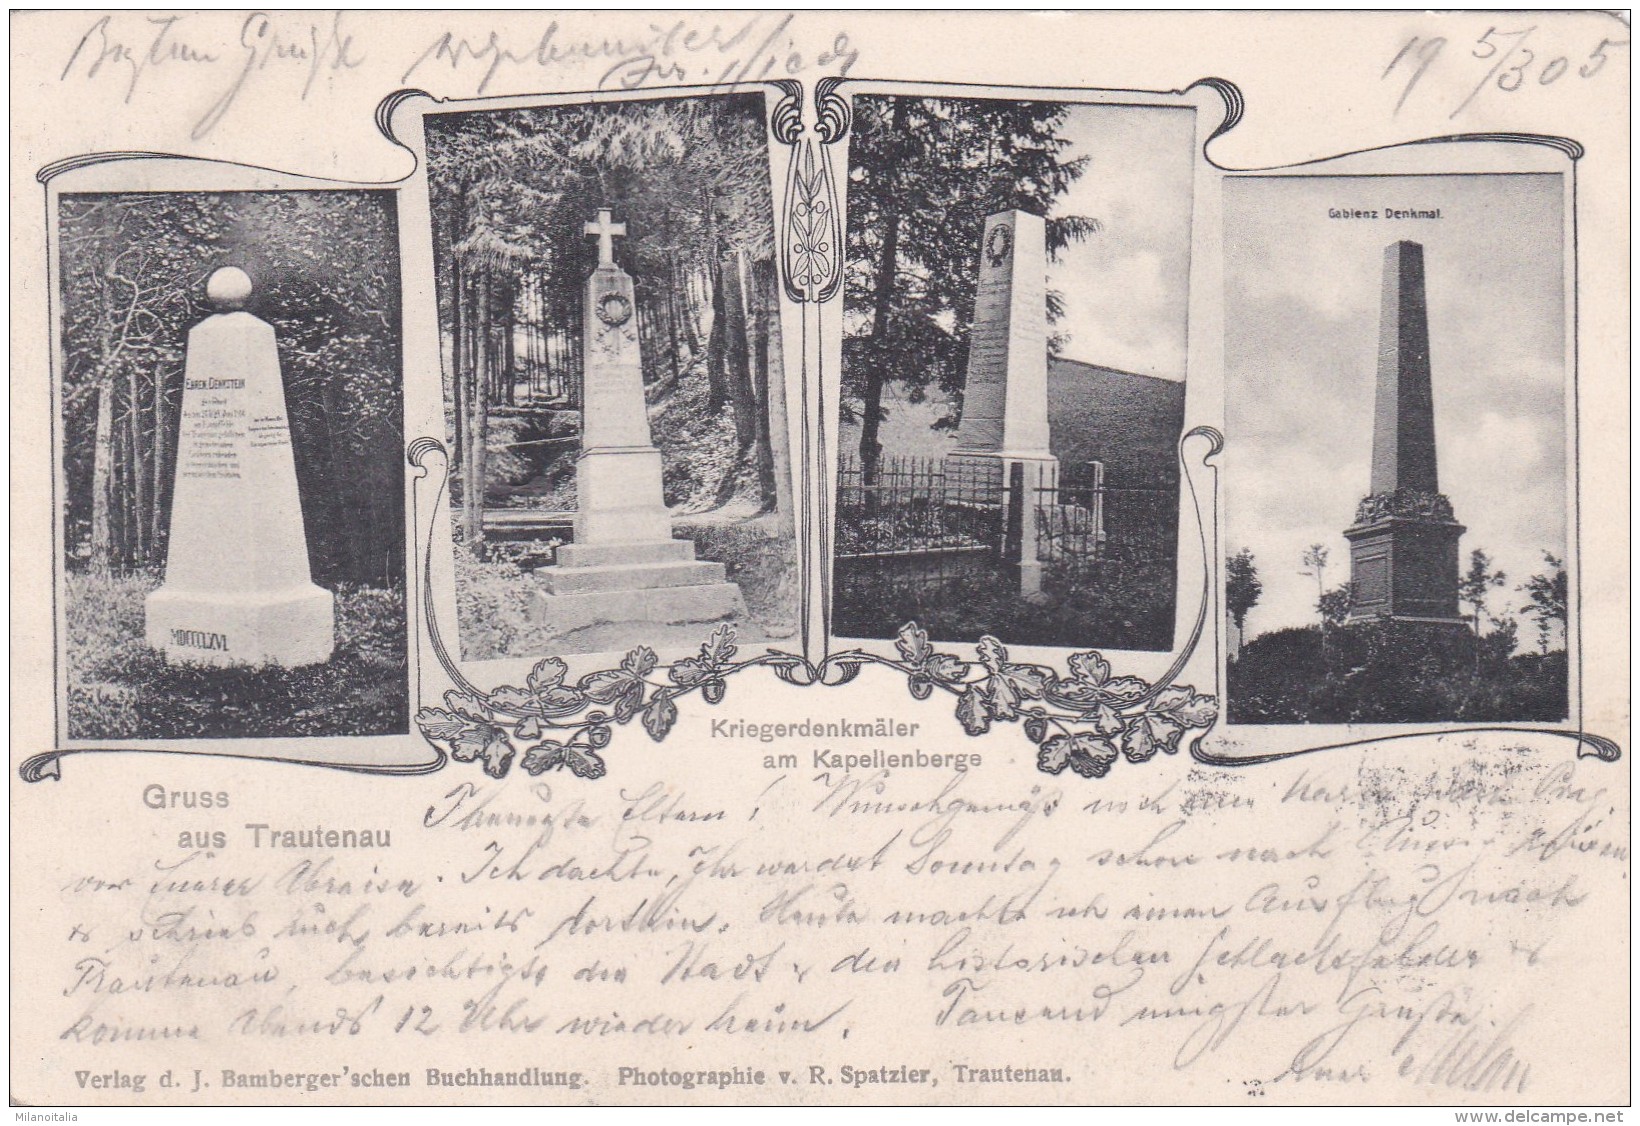 Besten Gruß
19 5/3 05
Gablenz Denkmal.
EHREN-DENKSTEIN
MDCCCLXVI.
Kriegerdenkmäler
am Kapellenberge
Gruss
aus Trautenau
Theuerste Eltern! Wunschgemäß noch eine Karte
vor Eurer Abreise. Ich dachte, Ihr werdet Sonntag schon nach
& schrieb Euch bereits dorthin. Heute machte ich einen Ausflug nach
Trautenau, besichtigte die Stadt & die historischen Schlachtfelder &
komme Abends 12 Uhr wieder heim. Tausend innigsten Grüße.
Euer Milan
Verlag d. J. Bamberger'schen Buchhandlung. Photographie v. R. Spatzier, Trautenau.
Milanoitalia
www.delcampe.net